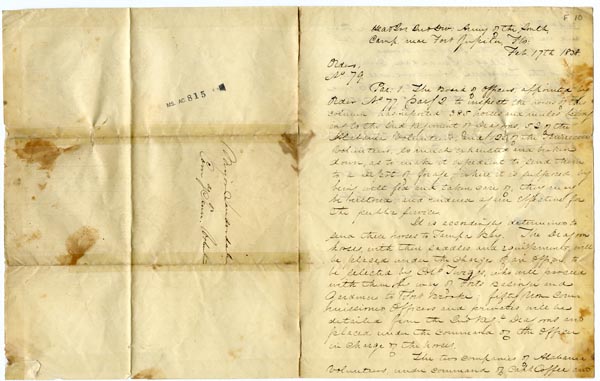 Head Qrs 2nd Div. Army of the South
Camp near Fort Jupiter, Fla
Feb. 17th 1838
Orders,
No 79
Par. 1. The Board of Officers appointed by
Order No 77 Par 2 to inspect the horses of the
column has reported 385 horses and mules
to the 2nd Regiment of Dragoons, 52 of the
Alabama Volunteers, of the Tennessee
Volunteers, so much exhausted and broken
down, as to make it expedient to send them
to a depot of forage where it is supposed by
being well fed and taken care of they may
be restored, and rendered again effective for
the public service.
It is accordingly determined to
send these horses to Tampa Bay. The Dragoon
horses, with their saddles and equipments, will
be placed under the charge of an officer to
be selected by Col. Twiggs, who will proceed
with them by way of Forts Basinger and
Gardiner to Fort Brooke; fifty Non Com-
missioned Officers and privates will be
detailed from the 2nd Regt Dragoons and
placed under the command of the Officer
in charge of the horses.
The two companies of Alabama
Volunteers under command of Capt Coffee and
MS. AC 815
Major
Com
8 10